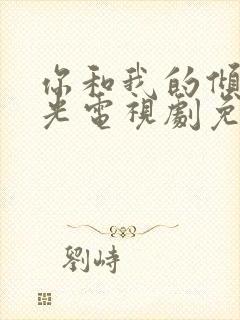 你和我的傾
光電視劇免
劉峙